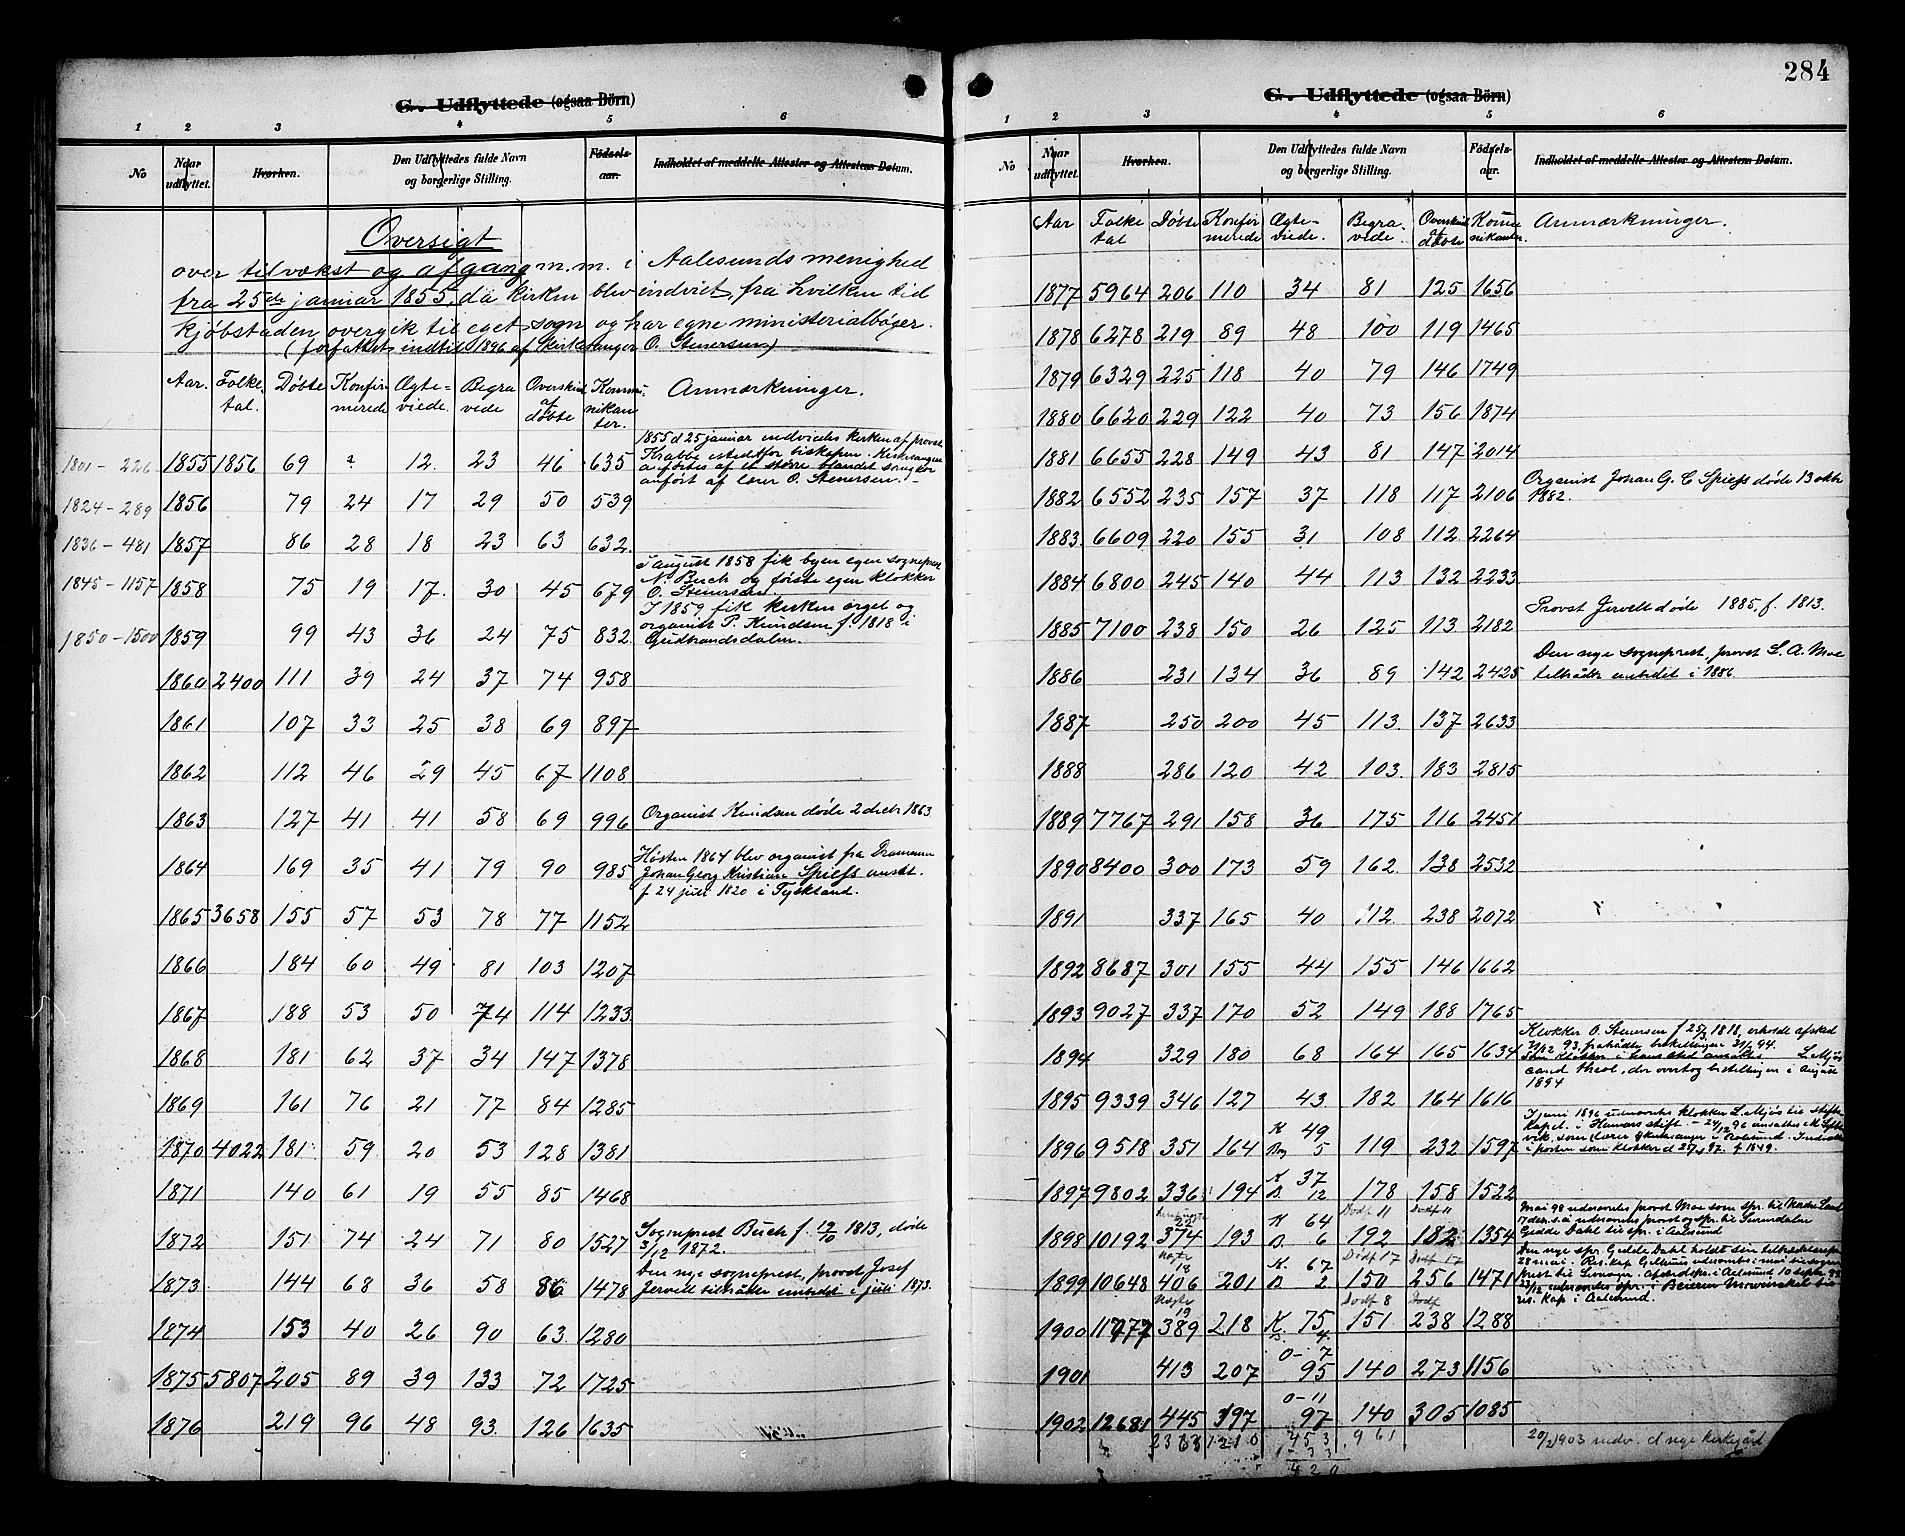 284
G. Udflyttede (ogsaa Börn)
1 2 3 4 5 6
No Naar udflyttet. Hvorhen. Den Udflyttedes fulde Navn og borgerlige Stilling. Fødsels-aar. Indholdet af meddelte Attester og Attestens Datum.
Oversigt
over tilvækst og afgang m.m. i Aalesunds menighed
fra 25de januar 1855, da kirken blev indviet, fra hvilken tid
kjøbstaden overgik til eget sogn og har egne ministerialbøger.
(forfattet indtil 1896 af kirkesanger O. Stenersen)
Aar. Folketal. Døbte Konfirmerede Ægteviede. Begravede Overskud af døbte Kommunikanter. Anmærkninger.
1855 d 25 januar indviedes kirken af provst
Krabbe istedtfor biskopen. Kirkesangen
anførtes af et større blandet sangkor
anført af lærer O. Stenersen.
1801 - 226 1855 1856 69 ? 12 23 46 635
1824 - 289 1856 79 24 17 29 50 539
1836 - 481 1857 86 28 18 23 63 632
I august 1858 fik byen egen sogneprest
N. Buch og første egen klokker
O. Stenersen.
1845 - 1157 1858 75 19 17 30 45 679
I 1859 fik kirken orgel og
organist P. Knudsen f. 1818 i
Gudbrandsdalen.
1850 - 1500 1859 99 43 36 24 75 832
1860 2400 111 39 24 37 74 958
1861 107 33 25 38 69 897
1862 112 46 29 45 67 1108
1863 127 41 41 58 69 996 Organist Knudsen døde 2 decbr 1863
Høsten 1864 blev organist fra Drammen
Johan Georg Kristian Spiefs ansat.
f 24 juli 1820 i Tyskland.
1864 169 35 41 79 90 985
1865 3658 155 57 53 78 77 1152
1866 184 60 49 81 103 1207
1867 188 53 50 74 114 1233
1868 181 62 37 34 147 1378
1869 161 76 21 77 84 1285
1870 4022 181 59 20 53 128 1381
1871 140 61 19 55 85 1468
1872 151 74 24 71 80 1527 Sogneprest Buch f. 19/10 1813, døde
3/12 1872.
1873 144 68 36 58 86 1478 Den nye sogneprest, provst Josef
Jervell tiltrådte embedet i juli 1873.
1874 153 40 26 90 63 1280
1875 5807 205 89 39 133 72 1725
1876 219 96 48 93 126 1635
G. Udflyttede (ogsaa Börn)
1 2 3 4 5 6
No Naar udflyttet. Hvorhen. Den Udflyttedes fulde Navn og borgerlige Stilling. Fødsels-aar. Indholdet af meddelte Attester og Attestens Datum.
Aar Folketal Døbte Konfirmerede Ægteviede. Begravede. Overskud af døbte Kommunikanter. Anmærkninger.
1877 5964 206 110 34 81 125 1656
1878 6278 219 89 48 100 119 1465
1879 6329 225 118 40 79 146 1749
1880 6620 229 122 40 73 156 1874
1881 6655 228 149 43 81 147 2014
1882 6552 235 157 37 118 117 2106 Organist Johan G. C Spiefs døde 13 oktr
1882.
1883 6609 220 155 31 108 112 2264
1884 6800 245 140 44 113 132 2233
1885 7100 238 150 26 125 113 2182 Provst Jervell døde 1885, f. 1813.
1886 231 134 36 89 142 2425 Den nye sogneprest, provst S. A. Moe
tiltrådte embedet i 1886.
1887 250 200 45 113 137 2633
1888 286 120 42 103 183 2815
1889 7767 291 158 36 175 116 2451
1890 8400 300 173 59 162 138 2532
1891 337 165 40 112 238 2072
1892 8687 301 155 44 155 146 1662
1893 9027 337 170 52 149 188 1765
1894 329 180 68 164 165 1634
Klokker O. Stenersen f 25/3 1818, erholdt afsked
31/12 93, fratrådte bestillingen 31/7 94.
Som klokker i hans sted ansattes L. Mjøs
cand theol, der overtog bestillingen i August
1894
1895 9339 346 127 43 182 164 1616
1896 9518 351 164 K 49 5 119 232 1597
I juni 1896 udnævntes klokker L. Mjøs til stifts-
kapel. i Hamars stift - 24/12 96 ansattes
som lærer & kirkesanger i Aalesund.
i posten som klokker f 1849.
1897 9802 336 194 K 37 B. 12 178 158 1522
1898 10192 374 22 193 K 64 B. 6 Dødf 11 192 Dødf 11 182 1354
Mai 98 udnævntes provst Moe som spr. til
17 des. s.a. udnævntes provst og spr. til Surendalen
Gedde Dahl til spr. i Aalesund
1899 10648 Døgte 18 406 201 K. 67 B. 2 Dødf 17 150 Dødf 17 256 1471
Den nye spr. Gedde Dahl holdt sin tiltrædelsespr.
28 mai. Res. kap udnævntes i mai til sogne
prest til afskedspr. i Aalesund 10 septbr 99
udnævntes spr. i Beieren til
res. kap i Aalesund.
1900 11777 19 389 218 K. 75 4. Dødf 8 151 Dødf 238 1288
1901 413 207 0 - 7 95 140 273 1156
1902 12681 445 197 0 - 11 97 140 305 1085
453 961
33
420
20/2 1903 indv. d nye kirkegård